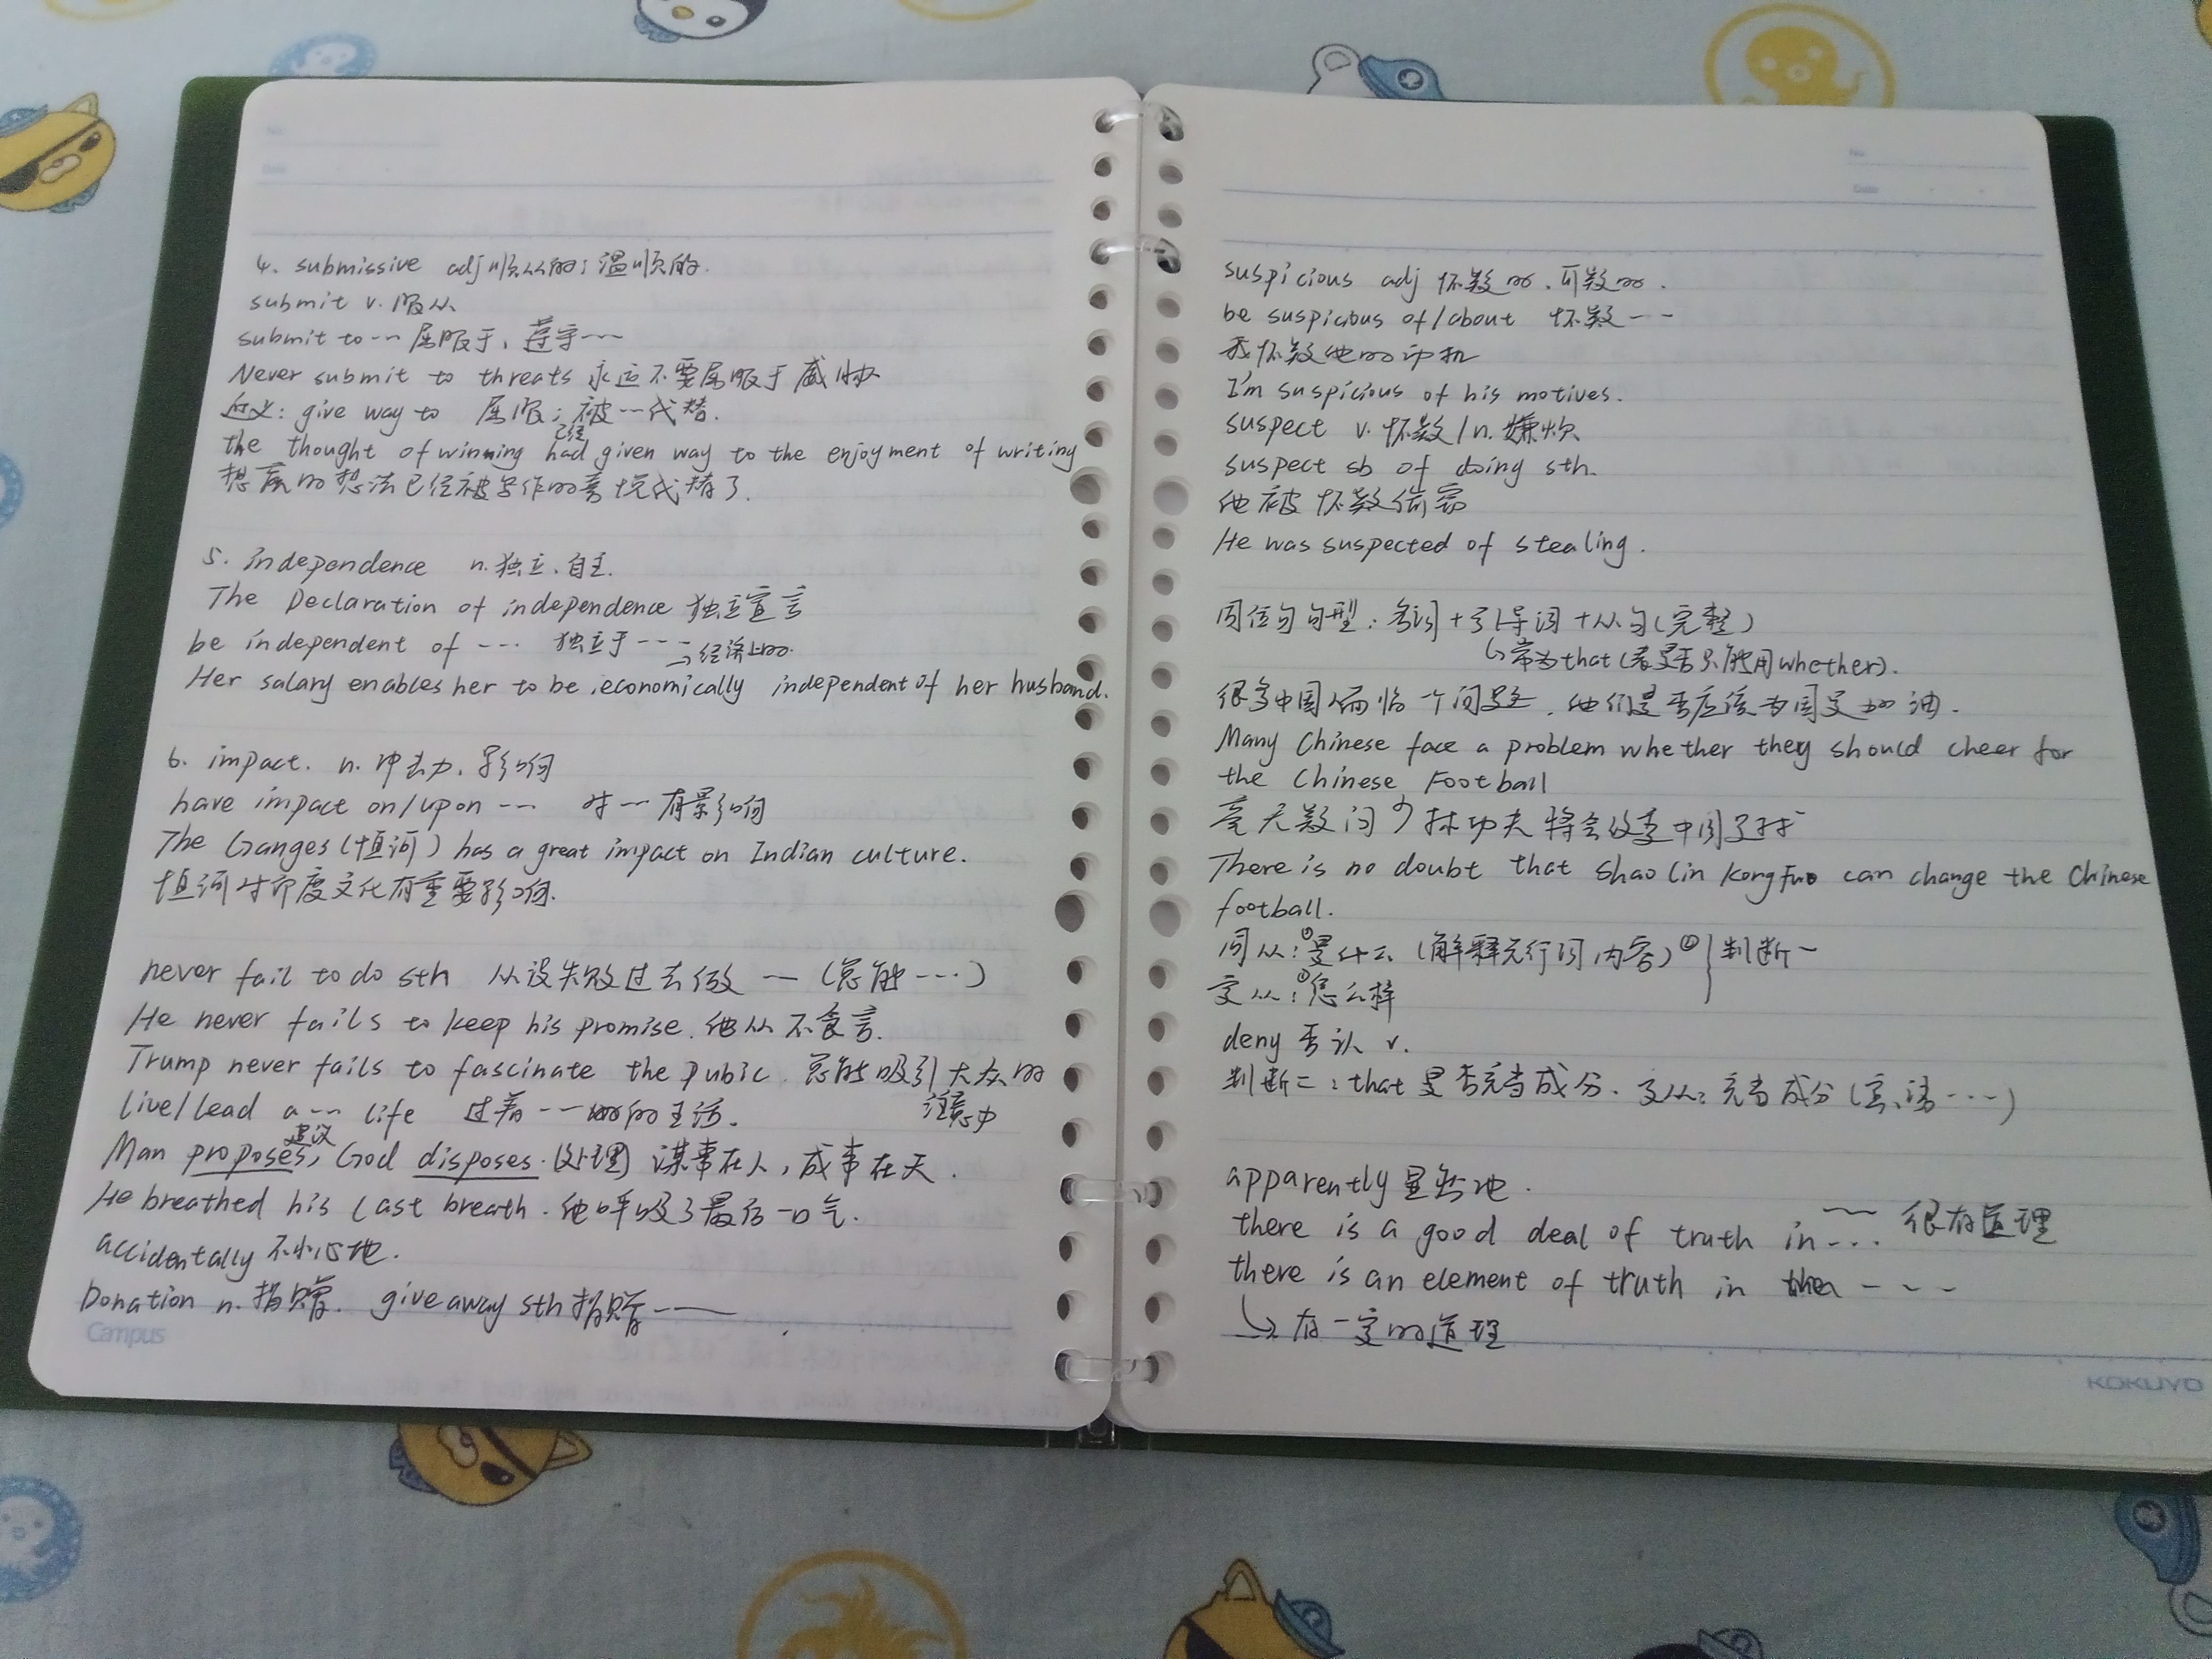 4. submissive adj 顺从的；温顺的.
submit v. 服从
submit to --- 屈服于、遵守---
Never submit to threats 永远不要屈服于威胁
近义: give way to 屈服；被--代替.
已经
the thought of winning had given way to the enjoyment of writing
想赢的想法已经被写作的喜悦代替了.
5. independence n.独立、自主.
The Declaration of independence 独立宣言
be independent of --- 独立于---
→经济上的.
Her salary enables her to be economically independent of her husband.
6. impact. n. 冲击力、影响
have impact on/upon --- 对--有影响
The Ganges(恒河) has a great impact on Indian culture.
恒河对印度文化有重要影响.
never fail to do sth 从没失败过去做 -- (总能---)
He never fails to keep his promise. 他从不食言.
Trump never fails to fascinate the pubic. 总能吸引大众的
注意力
live/lead a --- life 过着---的生活.
建议
Man proposes, God disposes.(处理) 谋事在人，成事在天.
He breathed his last breath. 他呼吸了最后一口气.
accidentally 不小心地.
Donation n. 捐赠. give away sth 捐赠---
Campus
No.
Date
suspicious adj 怀疑的、可疑的.
be suspicious of/about 怀疑---
我怀疑他的动机
I'm suspicious of his motives.
suspect v. 怀疑/n. 嫌犯
suspect sb of doing sth.
他被怀疑偷窃
He was suspected of stealing.
同位句句型: 名词+引导词+从句(完整)
↳常为that(表是否只能用whether).
很多中国人面临个问题，他们是否应该为国足加油.
Many Chinese face a problem whether they should cheer for
the Chinese Football
毫无疑问少林功夫将会改变中国足球
There is no doubt that Shao Lin kongfu can change the Chinese
football.
同从:①是什么(解释先行词内容)② 判断一
定从:①怎么样
deny 否认 v.
判断二: that是否充当成分. 定从: 充当成分(主、语---)
apparently 显然地.
there is a good deal of truth in --- 很有道理
there is an element of truth in ----
↳有一定的道理
KOKUYO